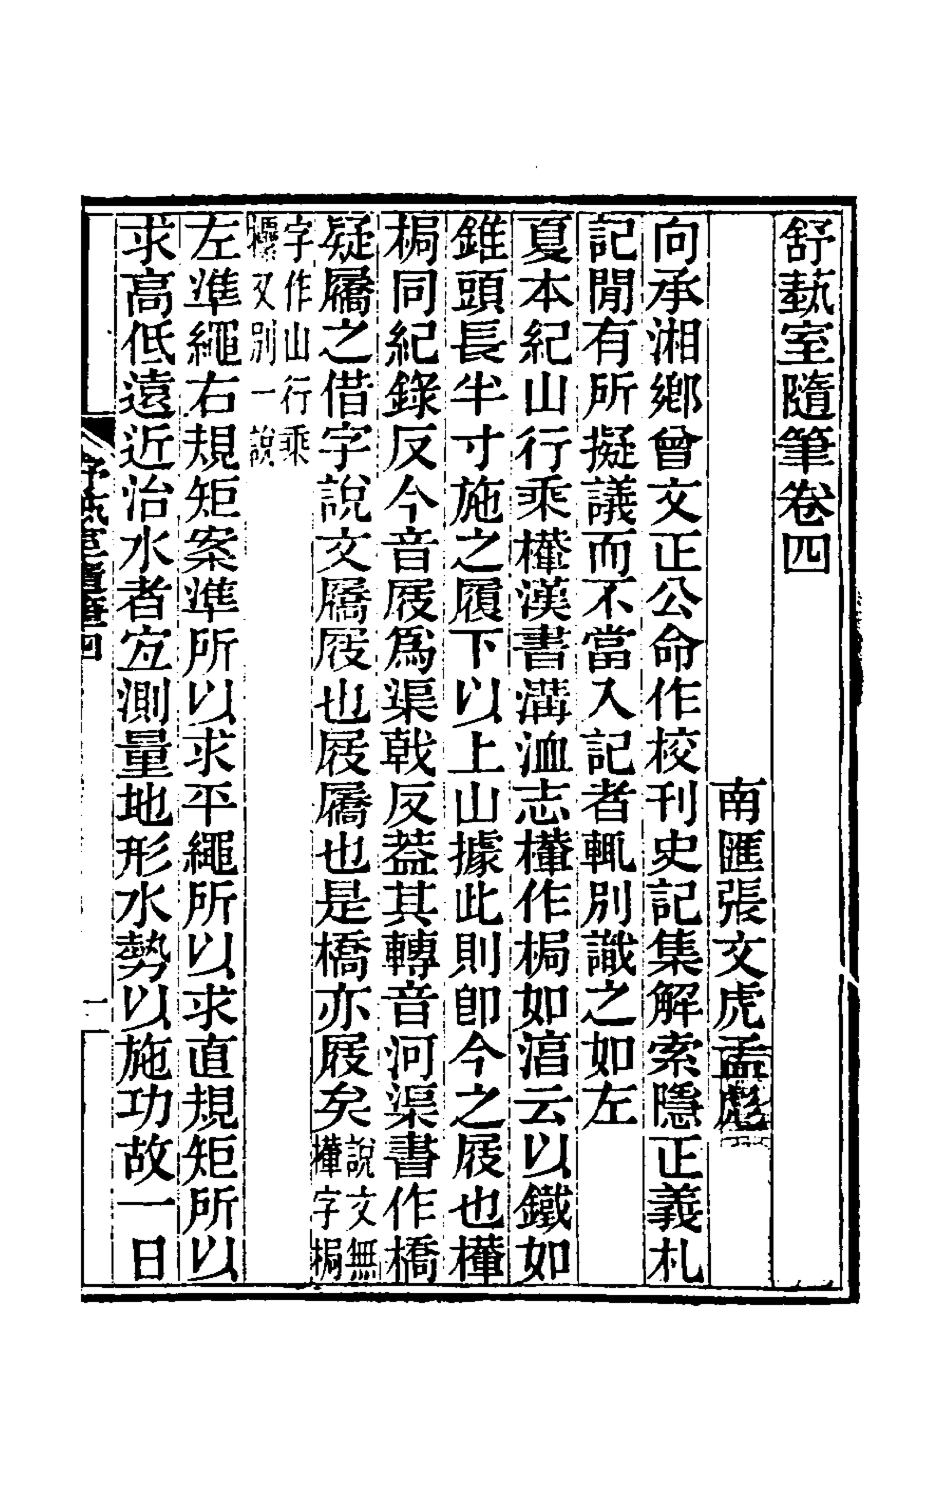 舒埶室隨筆卷四
南匯張文虎孟彪
向承湘鄉曾文正公命作校刊史記集解索隱正義札
記閒有所擬議而不當入記者輒別識之如左
夏本紀山行乘檋漢書溝洫志檋作梮如湻云以鐵如
錐頭長半寸施之履下以上山據此則卽今之屐也檋
梮同紀錄反今音屐爲渠戟反葢其轉音河渠書作橋
疑屩之借字說文屩屐也屐屩也是橋亦屐矣說文無檋字梮
字作山行乘欙又別一說
左準繩右規矩案準所以求平繩所以求直規矩所以
求高低遠近治水者宐測量地形水勢以施功故一日
舒埶室隨筆四
一